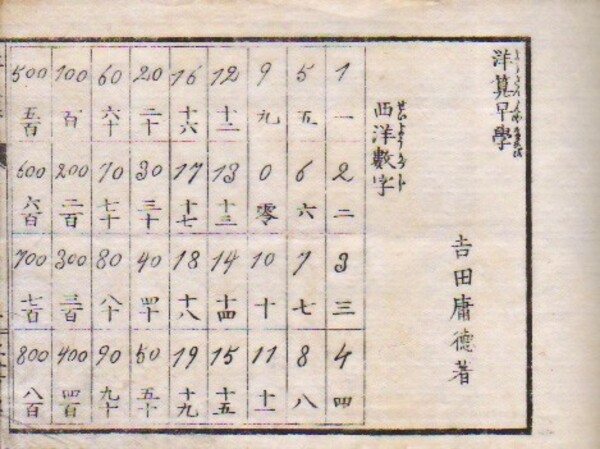 洋算早學
吉田庸德著
西洋數字
1
一
2
二
3
三
4
四
5
五
6
六
7
七
8
八
9
九
0
零
10
十
11
十一
12
十二
13
十三
14
十四
15
十五
16
十六
17
十七
18
十八
19
十九
20
二十
30
三十
40
四十
50
五十
60
六十
70
七十
80
八十
90
九十
100
百
200
二百
300
三百
400
四百
500
五百
600
六百
700
七百
800
八百